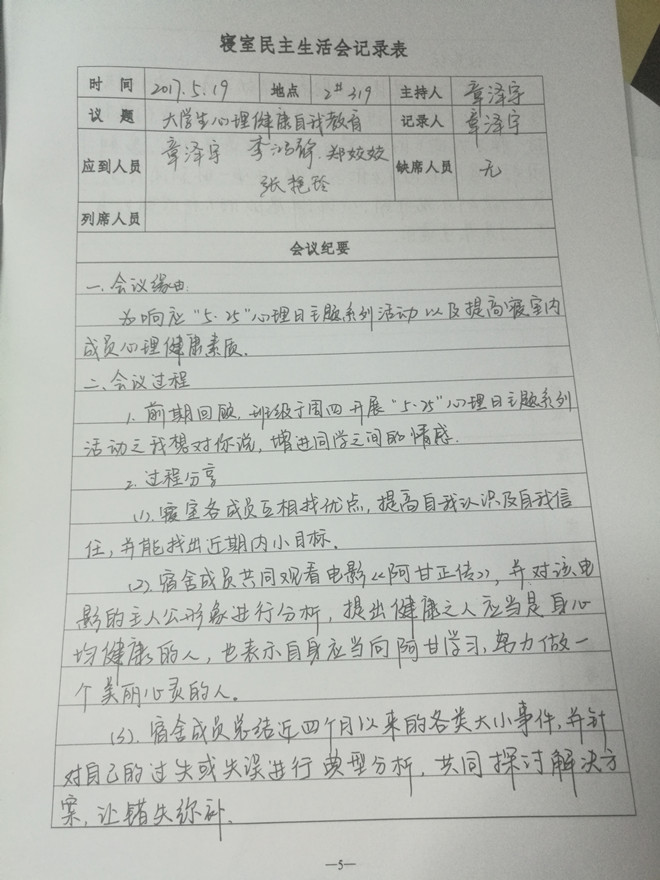 寝室民主生活会记录表
时 间 2017.5.19 地点 2#319 主持人 章泽宇
议 题 大学生心理健康自我教育 记录人 章泽宇
应到人员 章泽宇 李 静 郑姣姣 缺席人员 无
张艳玲
列席人员
会议纪要
一、会议缘由:
为响应"5·25"心理日主题系列活动以及提高寝室内
成员心理健康素质.
二、会议过程
1. 前期回顾, 班级于周四开展"5·25"心理日主题系列
活动之我想对你说, 增进同学之间的情感.
2. 过程分享
(1). 寝室各成员互相找优点, 提高自我认识及自我信
任, 并能找出近期内小目标.
(2). 宿舍成员共同观看电影《阿甘正传》, 并对该电
影的主人公形象进行分析, 提出健康之人应当是身心
均健康的人, 也表示自身应当向阿甘学习, 努力做一
个美丽心灵的人.
(3). 宿舍成员总结近四个月以来的各类大小事件, 并针
对自己的过失或失误进行典型分析, 共同探讨解决方
案, 让错失弥补.
—5—